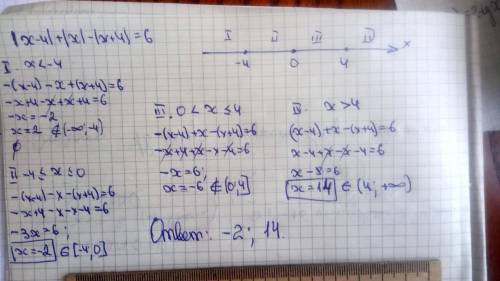 |x-4|+|x|-|x+4|=6
I II III IV
-4 0 4 x
I x<-4
-(x-4)-x+(x+4)=6
-x+4-x+x+4=6
-x=-2
x=2 ∉(-∞;-4)
∅
II -4≤x≤0
-(x-4)-x-(x+4)=6
-x+4-x-x-4=6
-3x=6;
x=-2 ∈[-4;0]
III 0<x≤4
-(x-4)+x-(x+4)=6
-x+4+x-x-4=6
-x=6;
x=-6 ∉(0;4]
IV x>4
(x-4)+x-(x+4)=6
x-4+x-x-4=6
x-8=6
x=14 ∈ (4;+∞)
Ответ: -2; 14.